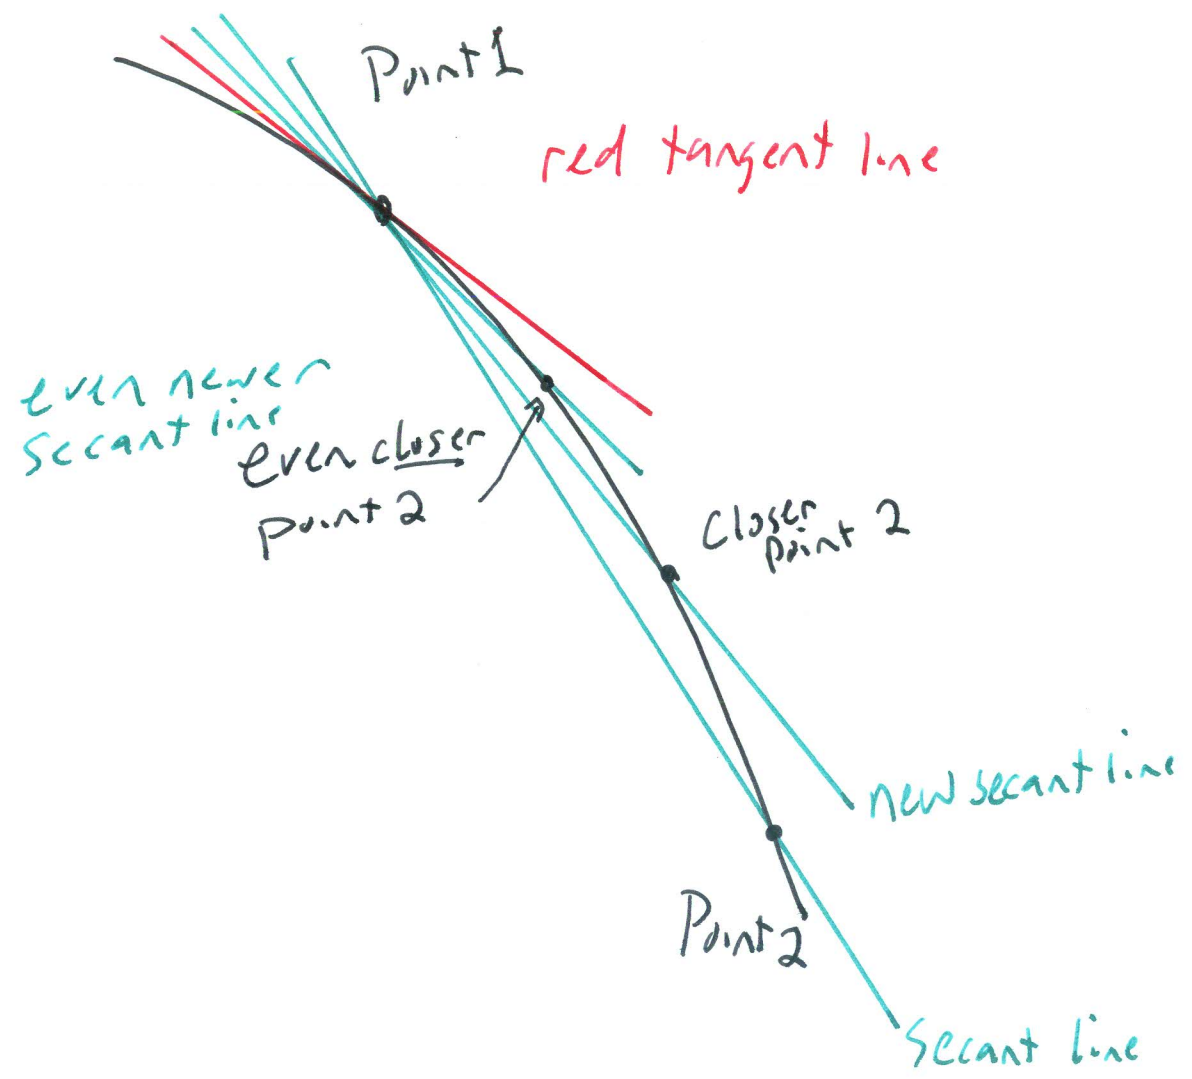 Point 1
red tangent line
even newer
secant line
even closer
point 2
closer
point 2
new secant line
Point 2
Secant line